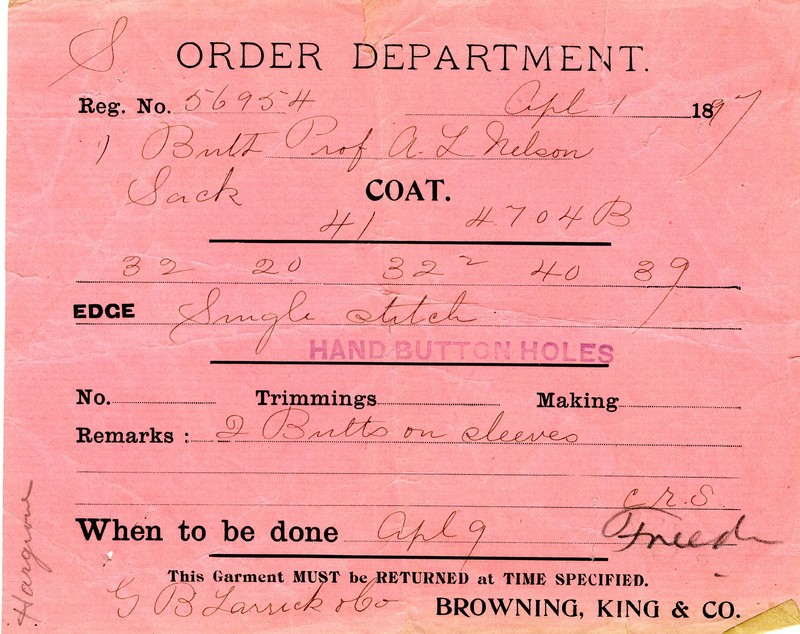 S ORDER DEPARTMENT.
Reg. No. 56954 Apl 1 1897
1 Butt Prof A. L Nelson
Sack COAT.
41 4704B
32 20 32 2 40 39
EDGE Single stitch
HAND BUTTON HOLES
No. Trimmings Making
Remarks: 2 Butts on sleeves
C. R. S.
When to be done Apl 9 Freed
This Garment MUST be RETURNED at TIME SPECIFIED.
G B Larrick & Co BROWNING, KING & CO.
Hargrove